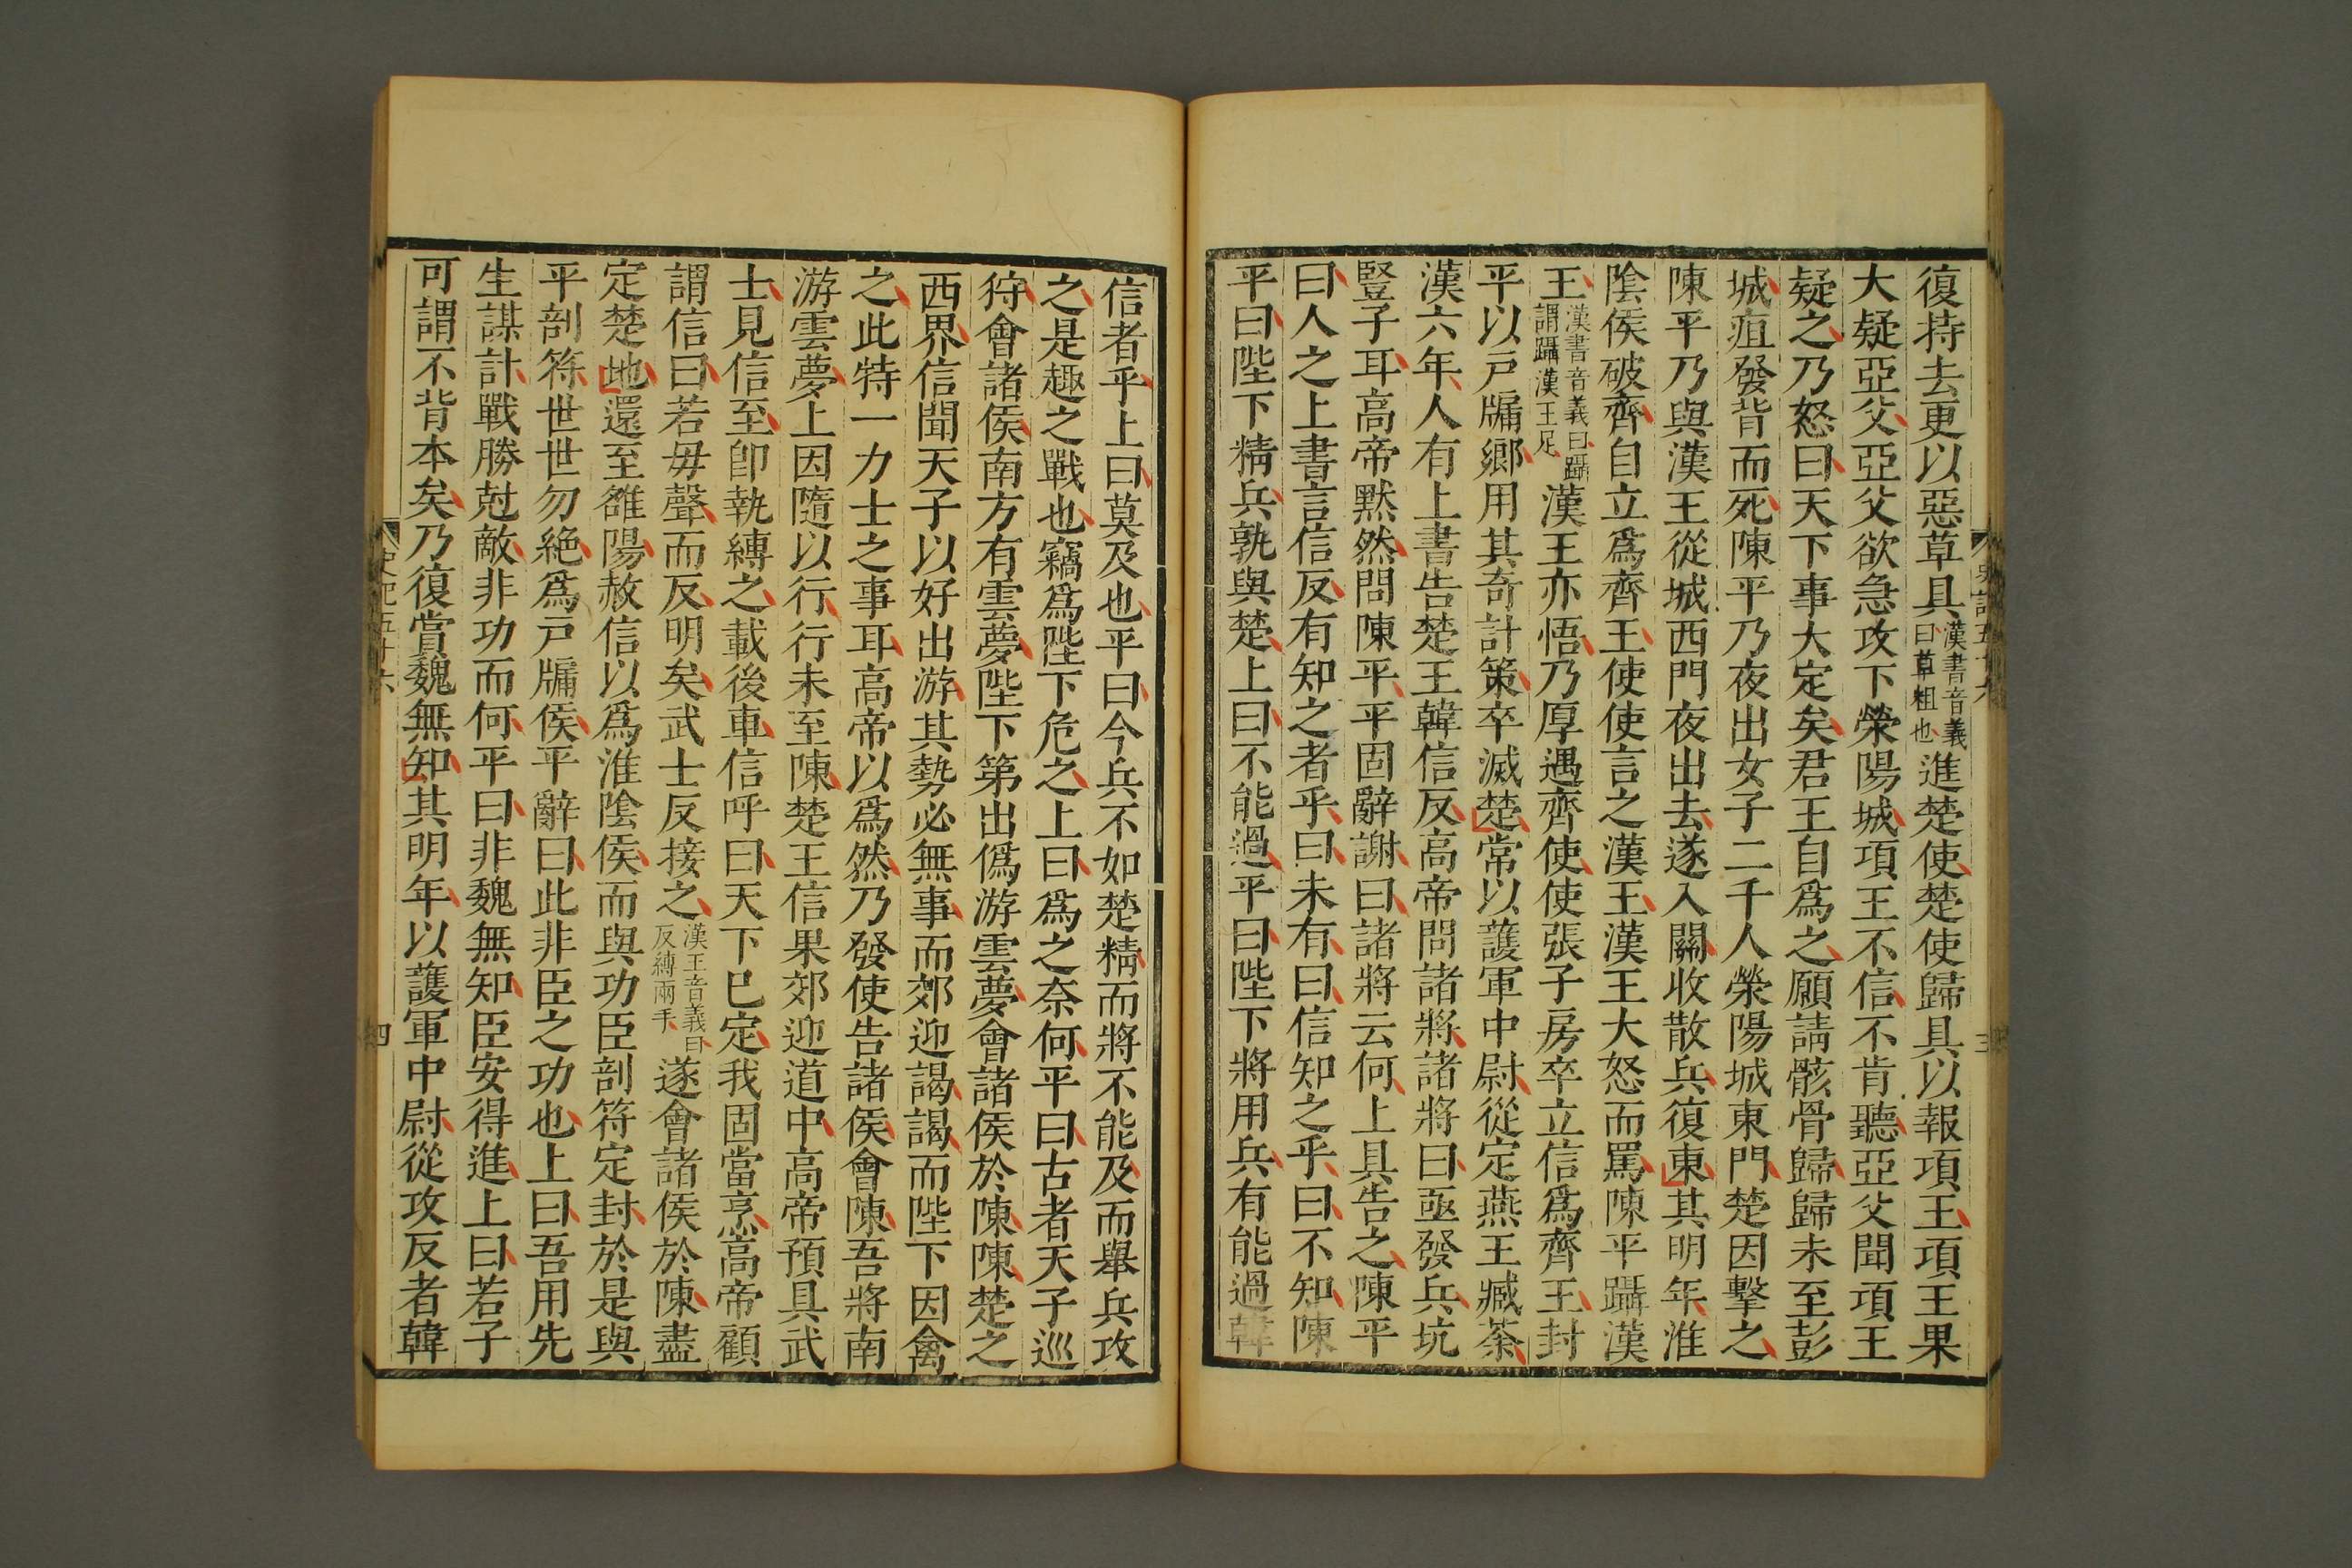 復持去更以惡草具漢書音義曰草粗也進楚使楚使歸具以報項王項王果
大疑亞父亞父欲急攻下榮陽城項王不信不肯聽亞父聞項王
疑之乃怒曰天下事大定矣君王自爲之願請骸骨歸歸未至彭
城疽發背而死陳平乃夜出女子二千人榮陽城東門楚因擊之
陳平乃與漢王從城西門夜出去遂入關收散兵復東其明年淮
陰侯破齊自立爲齊王使使言之漢王漢王大怒而罵陳平躡漢
王漢書音義曰躡謂躡漢王足漢王亦悟乃厚遇齊使使張子房卒立信爲齊王封
平以戸牖鄉用其奇計策卒滅楚常以護軍中尉從定燕王臧荼
漢六年人有上書告楚王韓信反高帝問諸將諸將曰亟發兵坑
豎子耳高帝默然問陳平平固辭謝曰諸將云何上具告之陳平
曰人之上書言信反有知之者乎曰未有曰信知之乎曰不知陳
平曰陛下精兵孰與楚上曰不能過平曰陛下將用兵有能過韓
信者乎上曰莫及也平曰今兵不如楚精而將不能及而舉兵攻
之是趣之戰也竊爲陛下危之上曰爲之奈何平曰古者天子巡
狩會諸侯南方有雲夢陛下第出僞游雲夢會諸侯於陳陳楚之
西界信聞天子以好出游其勢必無事而郊迎謁謁而陛下因禽
之此特一力士之事耳高帝以爲然乃發使告諸侯會陳吾將南
游雲夢上因隨以行行未至陳楚王信果郊迎道中高帝預具武
士見信至卽執縛之載後車信呼曰天下已定我固當烹高帝顧
謂信曰若毋聲而反明矣武士反接之漢王音義曰反縛兩手遂會諸侯於陳盡
定楚地還至雒陽赦信以爲淮陰侯而與功臣剖符定封於是與
平剖符世世勿絕爲戸牖侯平辭曰此非臣之功也上曰吾用先
生謀計戰勝尅敵非功而何平曰非魏無知臣安得進上曰若子
可謂不背本矣乃復賞魏無知其明年以護軍中尉從攻反者韓
史記五十六
四